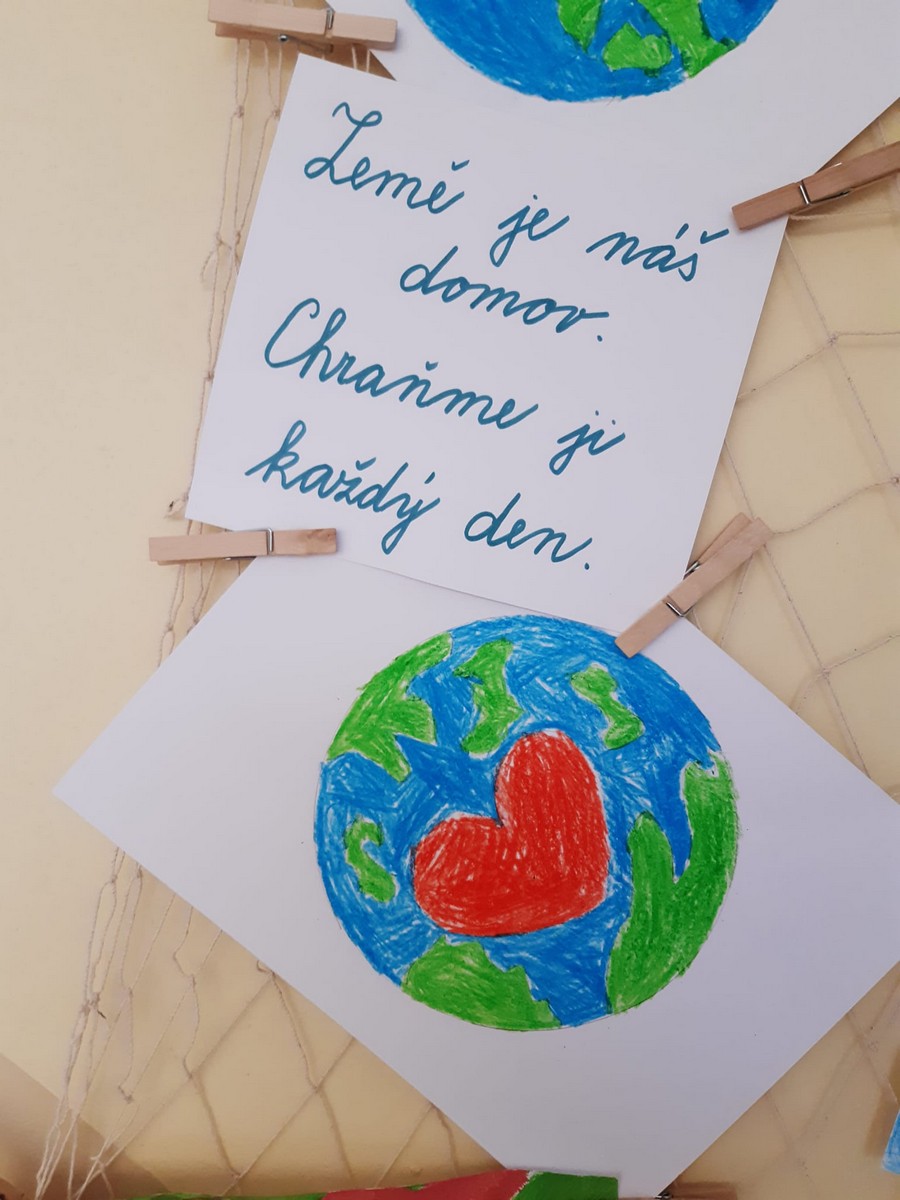 Země je náš
domov.
Chraňme ji
každý den.